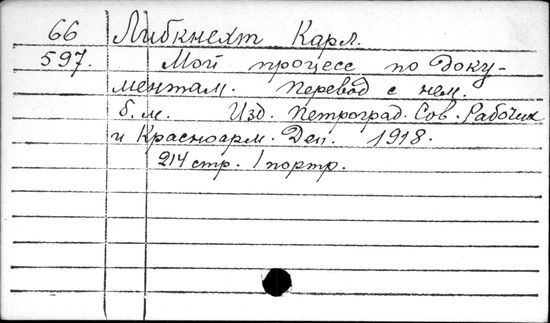 66 Либкнехт Карл.
597. Мой процесс по доку-
ментам. Перевод с нем.
б.м. Изд. Петроград. Сов. Рабочих
и Красноарм. Деп. 1918.
214 стр. 1 портр.